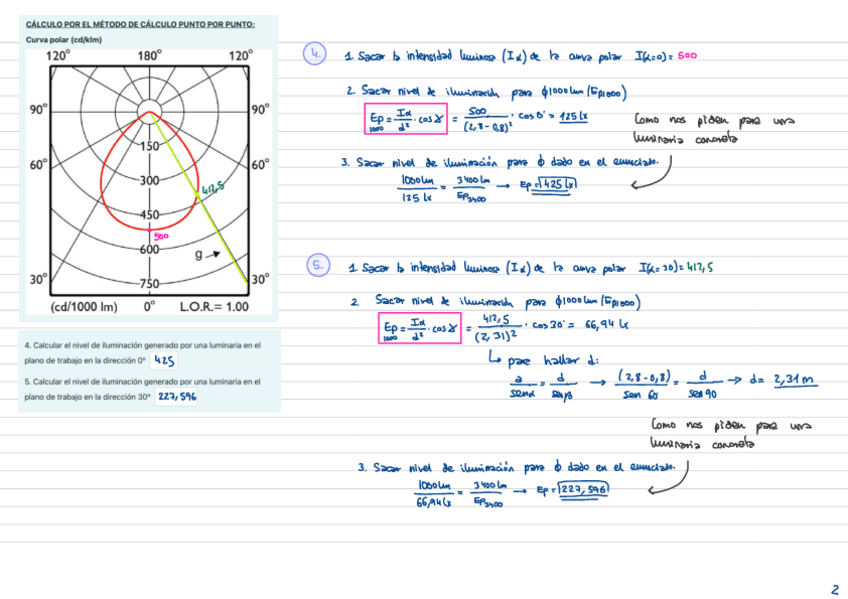 CÁLCULO POR EL MÉTODO DE CÁLCULO PUNTO POR PUNTO:
Curva polar (cd/klm)
120° 180° 120°
90° 90°
150
60° 300 60°
412,5
450
500
600
g
30° 750 30°
(cd/1000 lm) 0° L.O.R.= 1.00
4. Calcular el nivel de iluminación generado por una luminaria en el
plano de trabajo en la dirección 0° 425
5. Calcular el nivel de iluminación generado por una luminaria en el
plano de trabajo en la dirección 30° 227,596
4.
1. Sacar la intensidad luminosa (Iα) de la curva polar I(α=0) = 500
2. Sacar nivel de iluminación para ϕ1000 lum (Ep1000)
Ep1000 = Iα/d² · cos γ = 500/(2,8-0,8)² · cos 0° = 125 lx
Como nos piden para una
luminaria concreta
3. Sacar nivel de iluminación para ϕ dado en el enunciado.
1000 lm/125 lx = 3400 lm/Ep3400 → Ep = 425 lx
5.
1. Sacar la intensidad luminosa (Iα) de la curva polar I(α=30) = 412,5
2 Sacar nivel de iluminación para ϕ1000 lum (Ep1000)
Ep1000 = Iα/d² · cos γ = 412,5/(2,31)² · cos 30° = 66,94 lx
↳ para hallar d:
a/senα = d/senβ → (2,8-0,8)/sen 60 = d/sen 90 → d = 2,31 m
Como nos piden para una
luminaria concreta
3. Sacar nivel de iluminación para ϕ dado en el enunciado.
1000 lm/66,94 lx = 3400 lm/Ep3400 → Ep = 227,596
2